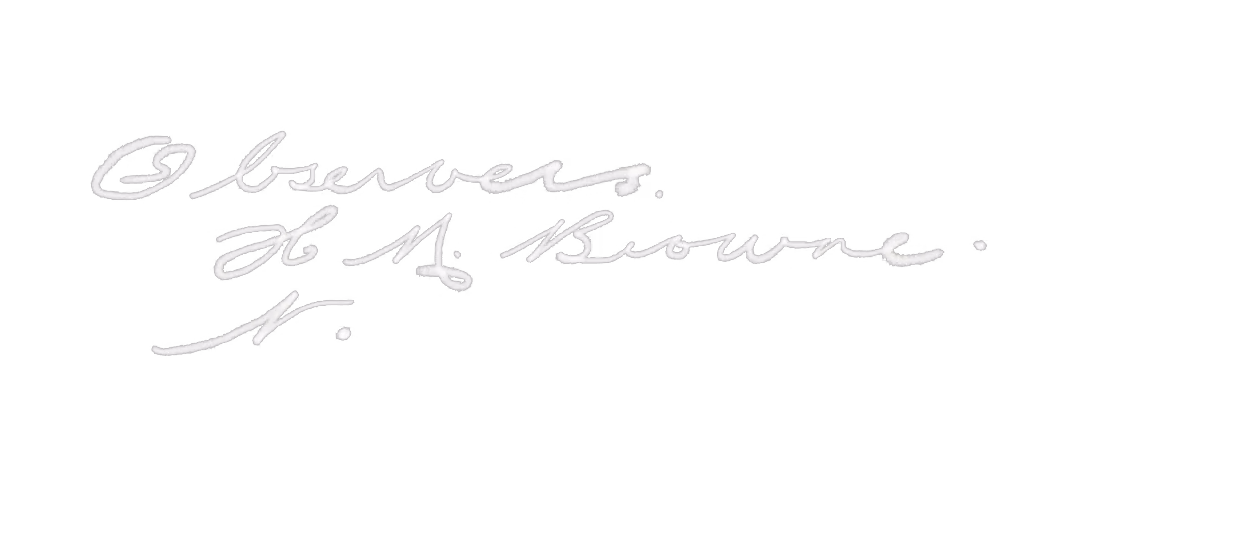 Observers.
H. M. Browne.
N.